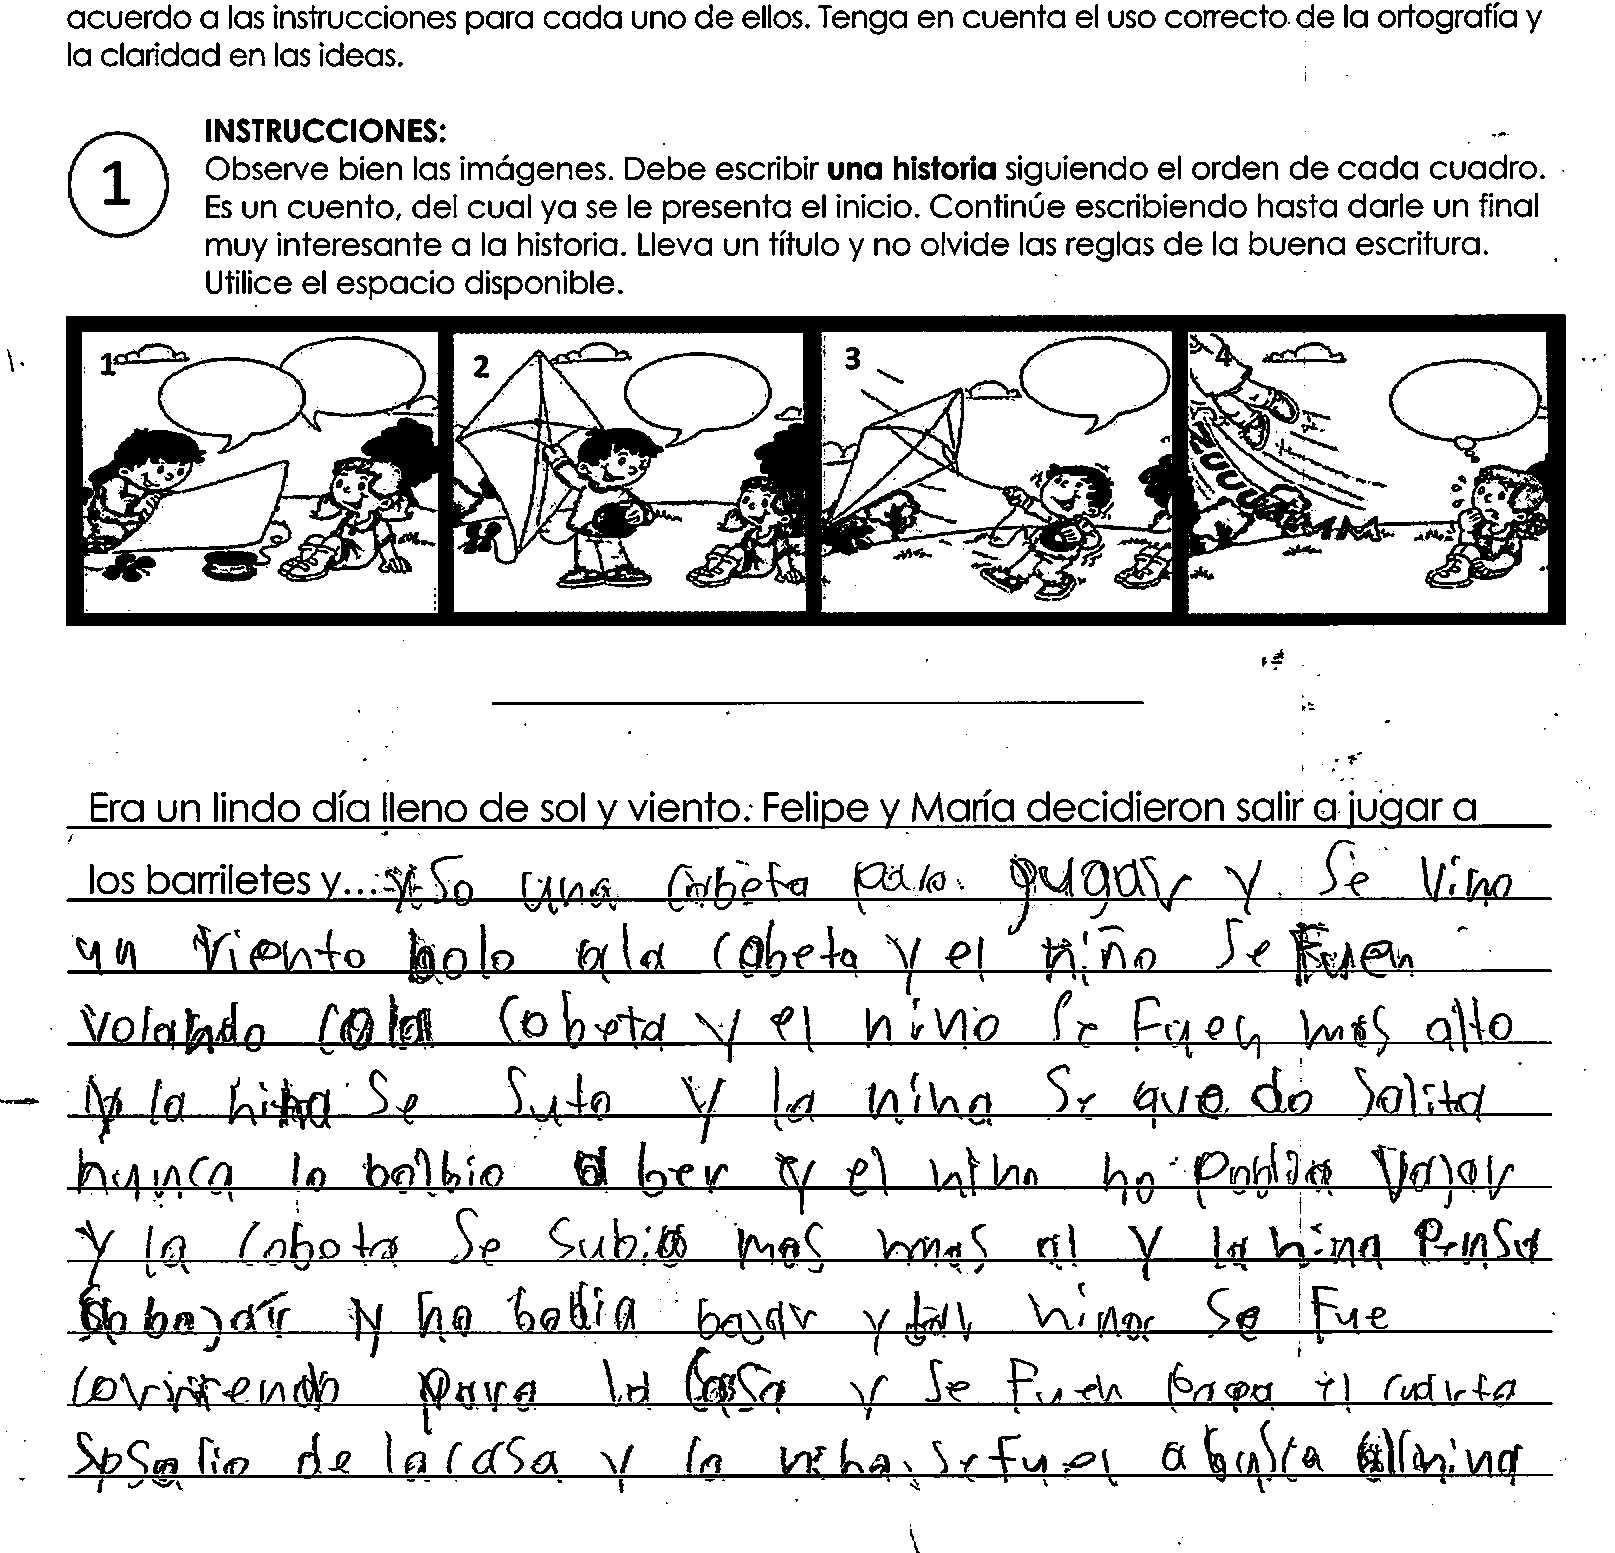 acuerdo a las instrucciones para cada uno de ellos. Tenga en cuenta el uso correcto de la ortografía y
la claridad en las ideas.
INSTRUCCIONES:
1
Observe bien las imágenes. Debe escribir una historia siguiendo el orden de cada cuadro.
Es un cuento, del cual ya se le presenta el inicio. Continúe escribiendo hasta darle un final
muy interesante a la historia. Lleva un título y no olvide las reglas de la buena escritura.
Utilice el espacio disponible.
1 2 3 4
ZUUUU
Era un lindo día lleno de sol y viento. Felipe y María decidieron salir a jugar a
los barriletes y... una cobeta para gugar y se vino
un viento bolo a la cobeta y el niño se fuen
volando cola cobeta y el nino se fuen mas alto
y la nina se suto y la nina se quedo solita
nunca lo bolbio a ber y el nino no vajar
y la cobeta se subio mas mas al y la nina pensa
bajar y no bodia bajar y nino se fue
para la casa y se fuen el cuarto
salio de la casa y la nina se fue a busca